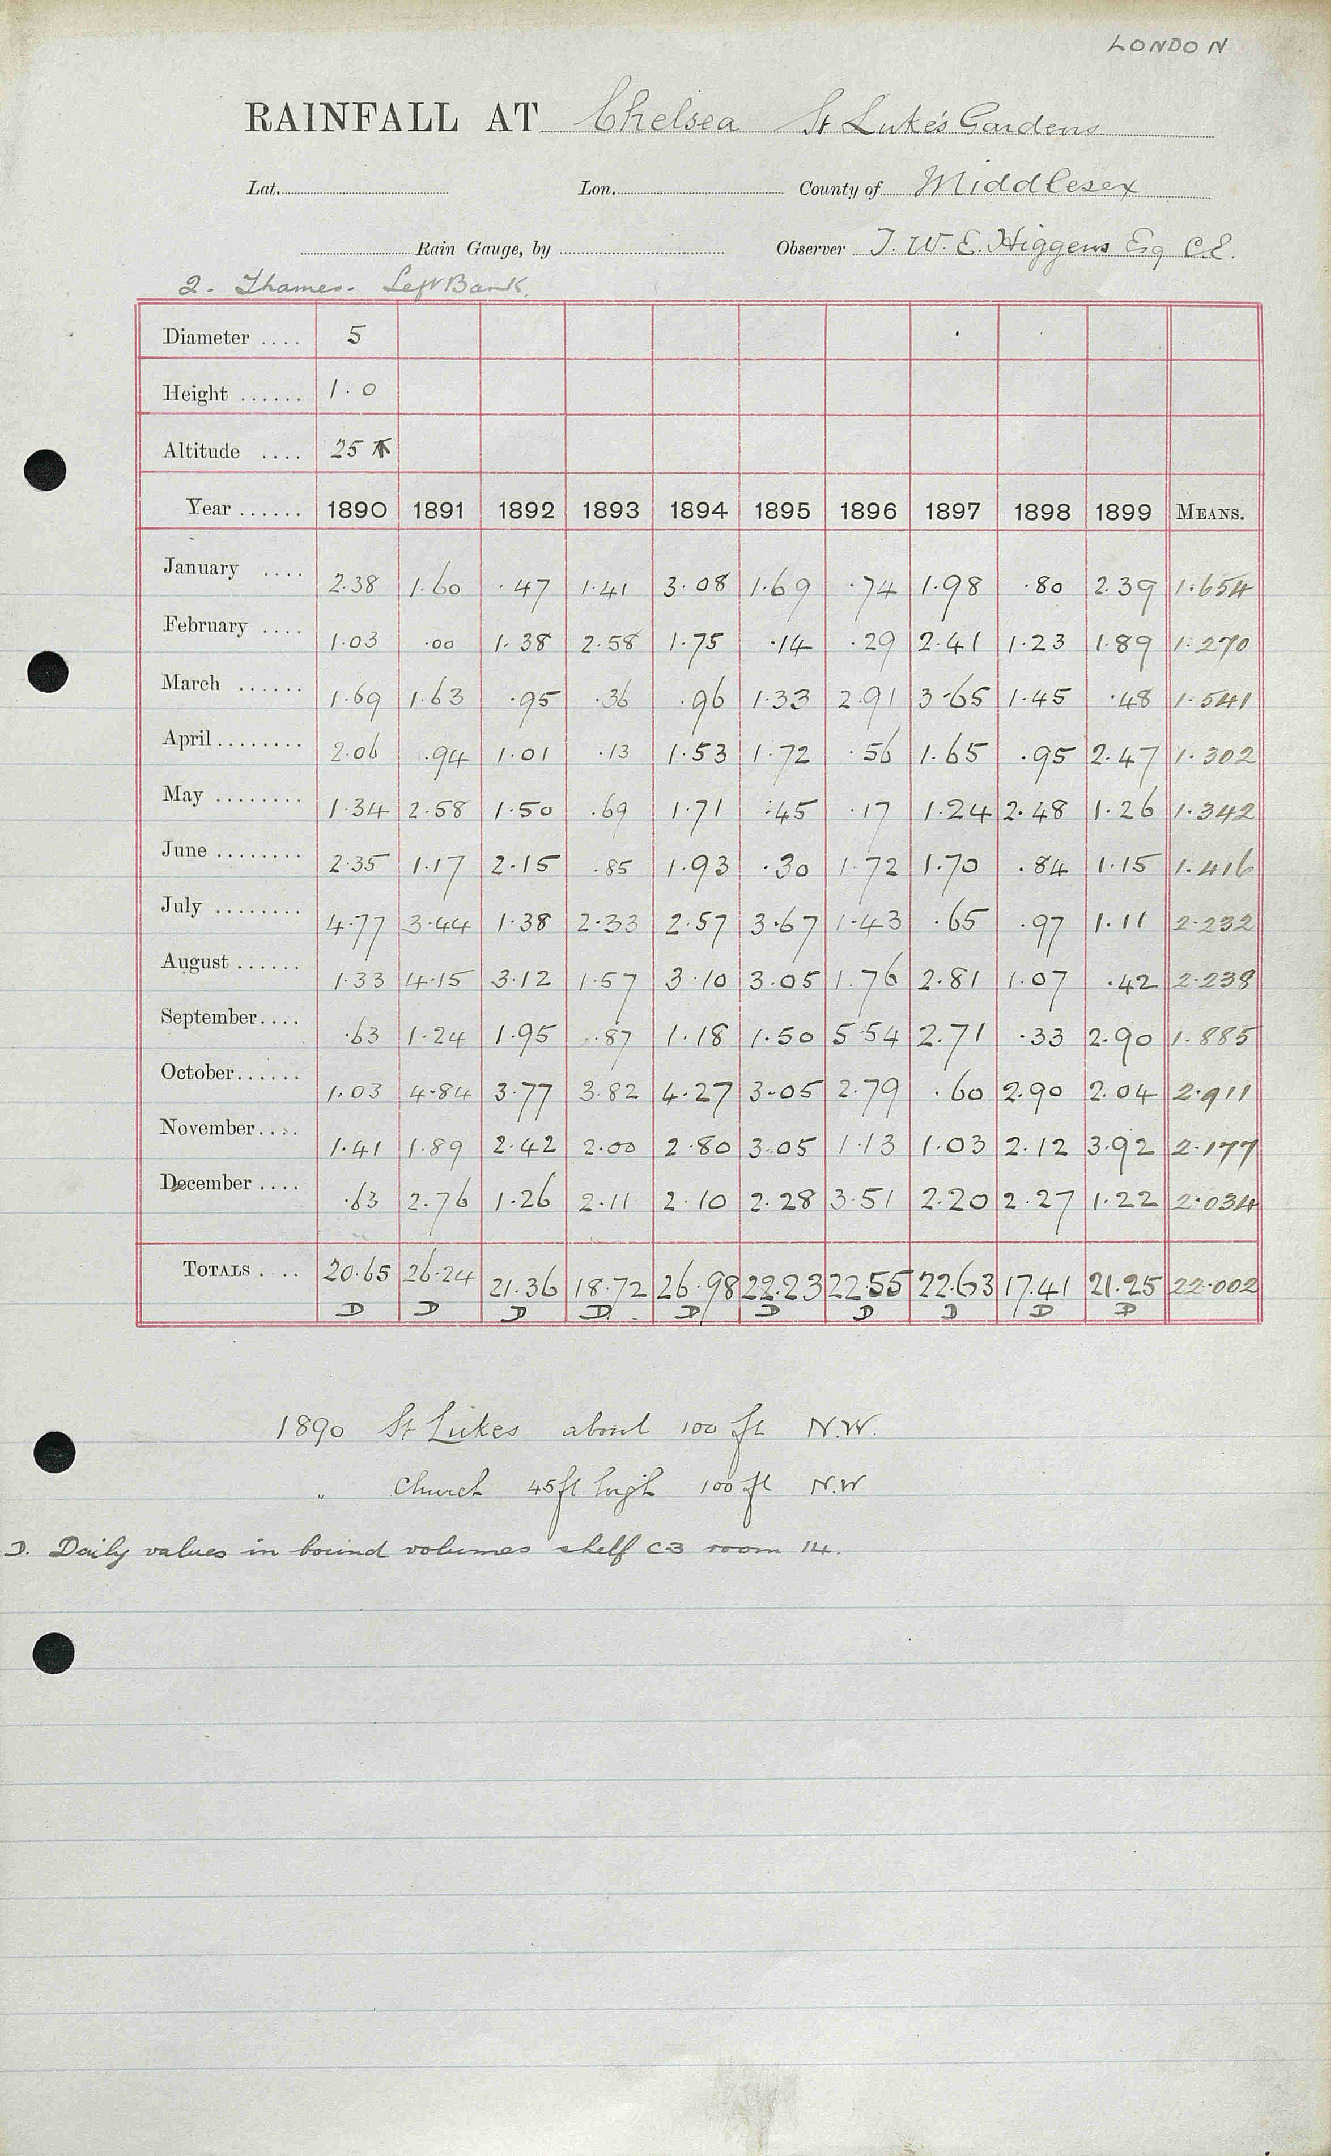 LONDON
RAINFALL AT Chelsea St Luke's Gardens
Lat. Lon. County of Middlesex
Rain Gauge, by Observer J. W. E. Higgens Esq C.E.
2. Thames. Left Bank.
Diameter .... 5
Height ...... 1.0
Altitude .... 25
Year ...... 1890 1891 1892 1893 1894 1895 1896 1897 1898 1899 MEANS.
January .... 2.38 1.60 .47 1.41 3.08 1.69 .74 1.98 .80 2.39 1.654
February .... 1.03 .00 1.38 2.58 1.75 .14 .29 2.41 1.23 1.89 1.270
March ...... 1.69 1.63 .95 .36 .96 1.33 2.91 3.65 1.45 .48 1.541
April ........ 2.06 .94 1.01 .13 1.53 1.72 .56 1.65 .95 2.47 1.302
May ........ 1.34 2.58 1.50 .69 1.71 .45 .17 1.24 2.48 1.26 1.342
June ........ 2.35 1.17 2.15 .85 1.93 .30 1.72 1.70 .84 1.15 1.416
July ........ 4.77 3.44 1.38 2.33 2.57 3.67 1.43 .65 .97 1.11 2.232
August ...... 1.33 4.15 3.12 1.57 3.10 3.05 1.76 2.81 1.07 .42 2.238
September .... .63 1.24 1.95 .87 1.18 1.50 5.54 2.71 .33 2.90 1.885
October ...... 1.03 4.84 3.77 3.82 4.27 3.05 2.79 .60 2.90 2.04 2.911
November .... 1.41 1.89 2.42 2.00 2.80 3.05 1.13 1.03 2.12 3.92 2.177
December .... .63 2.76 1.26 2.11 2.10 2.28 3.51 2.20 2.27 1.22 2.034
TOTALS .... 20.65 26.24 21.36 18.72 26.98 22.23 22.55 22.63 17.41 21.25 22.002
D D D D D D D D D D
1890 St Lukes about 100 ft N.W.
" Church 45 ft high 100 ft N.W
D. Daily values in bound volumes shelf C3 room 14.